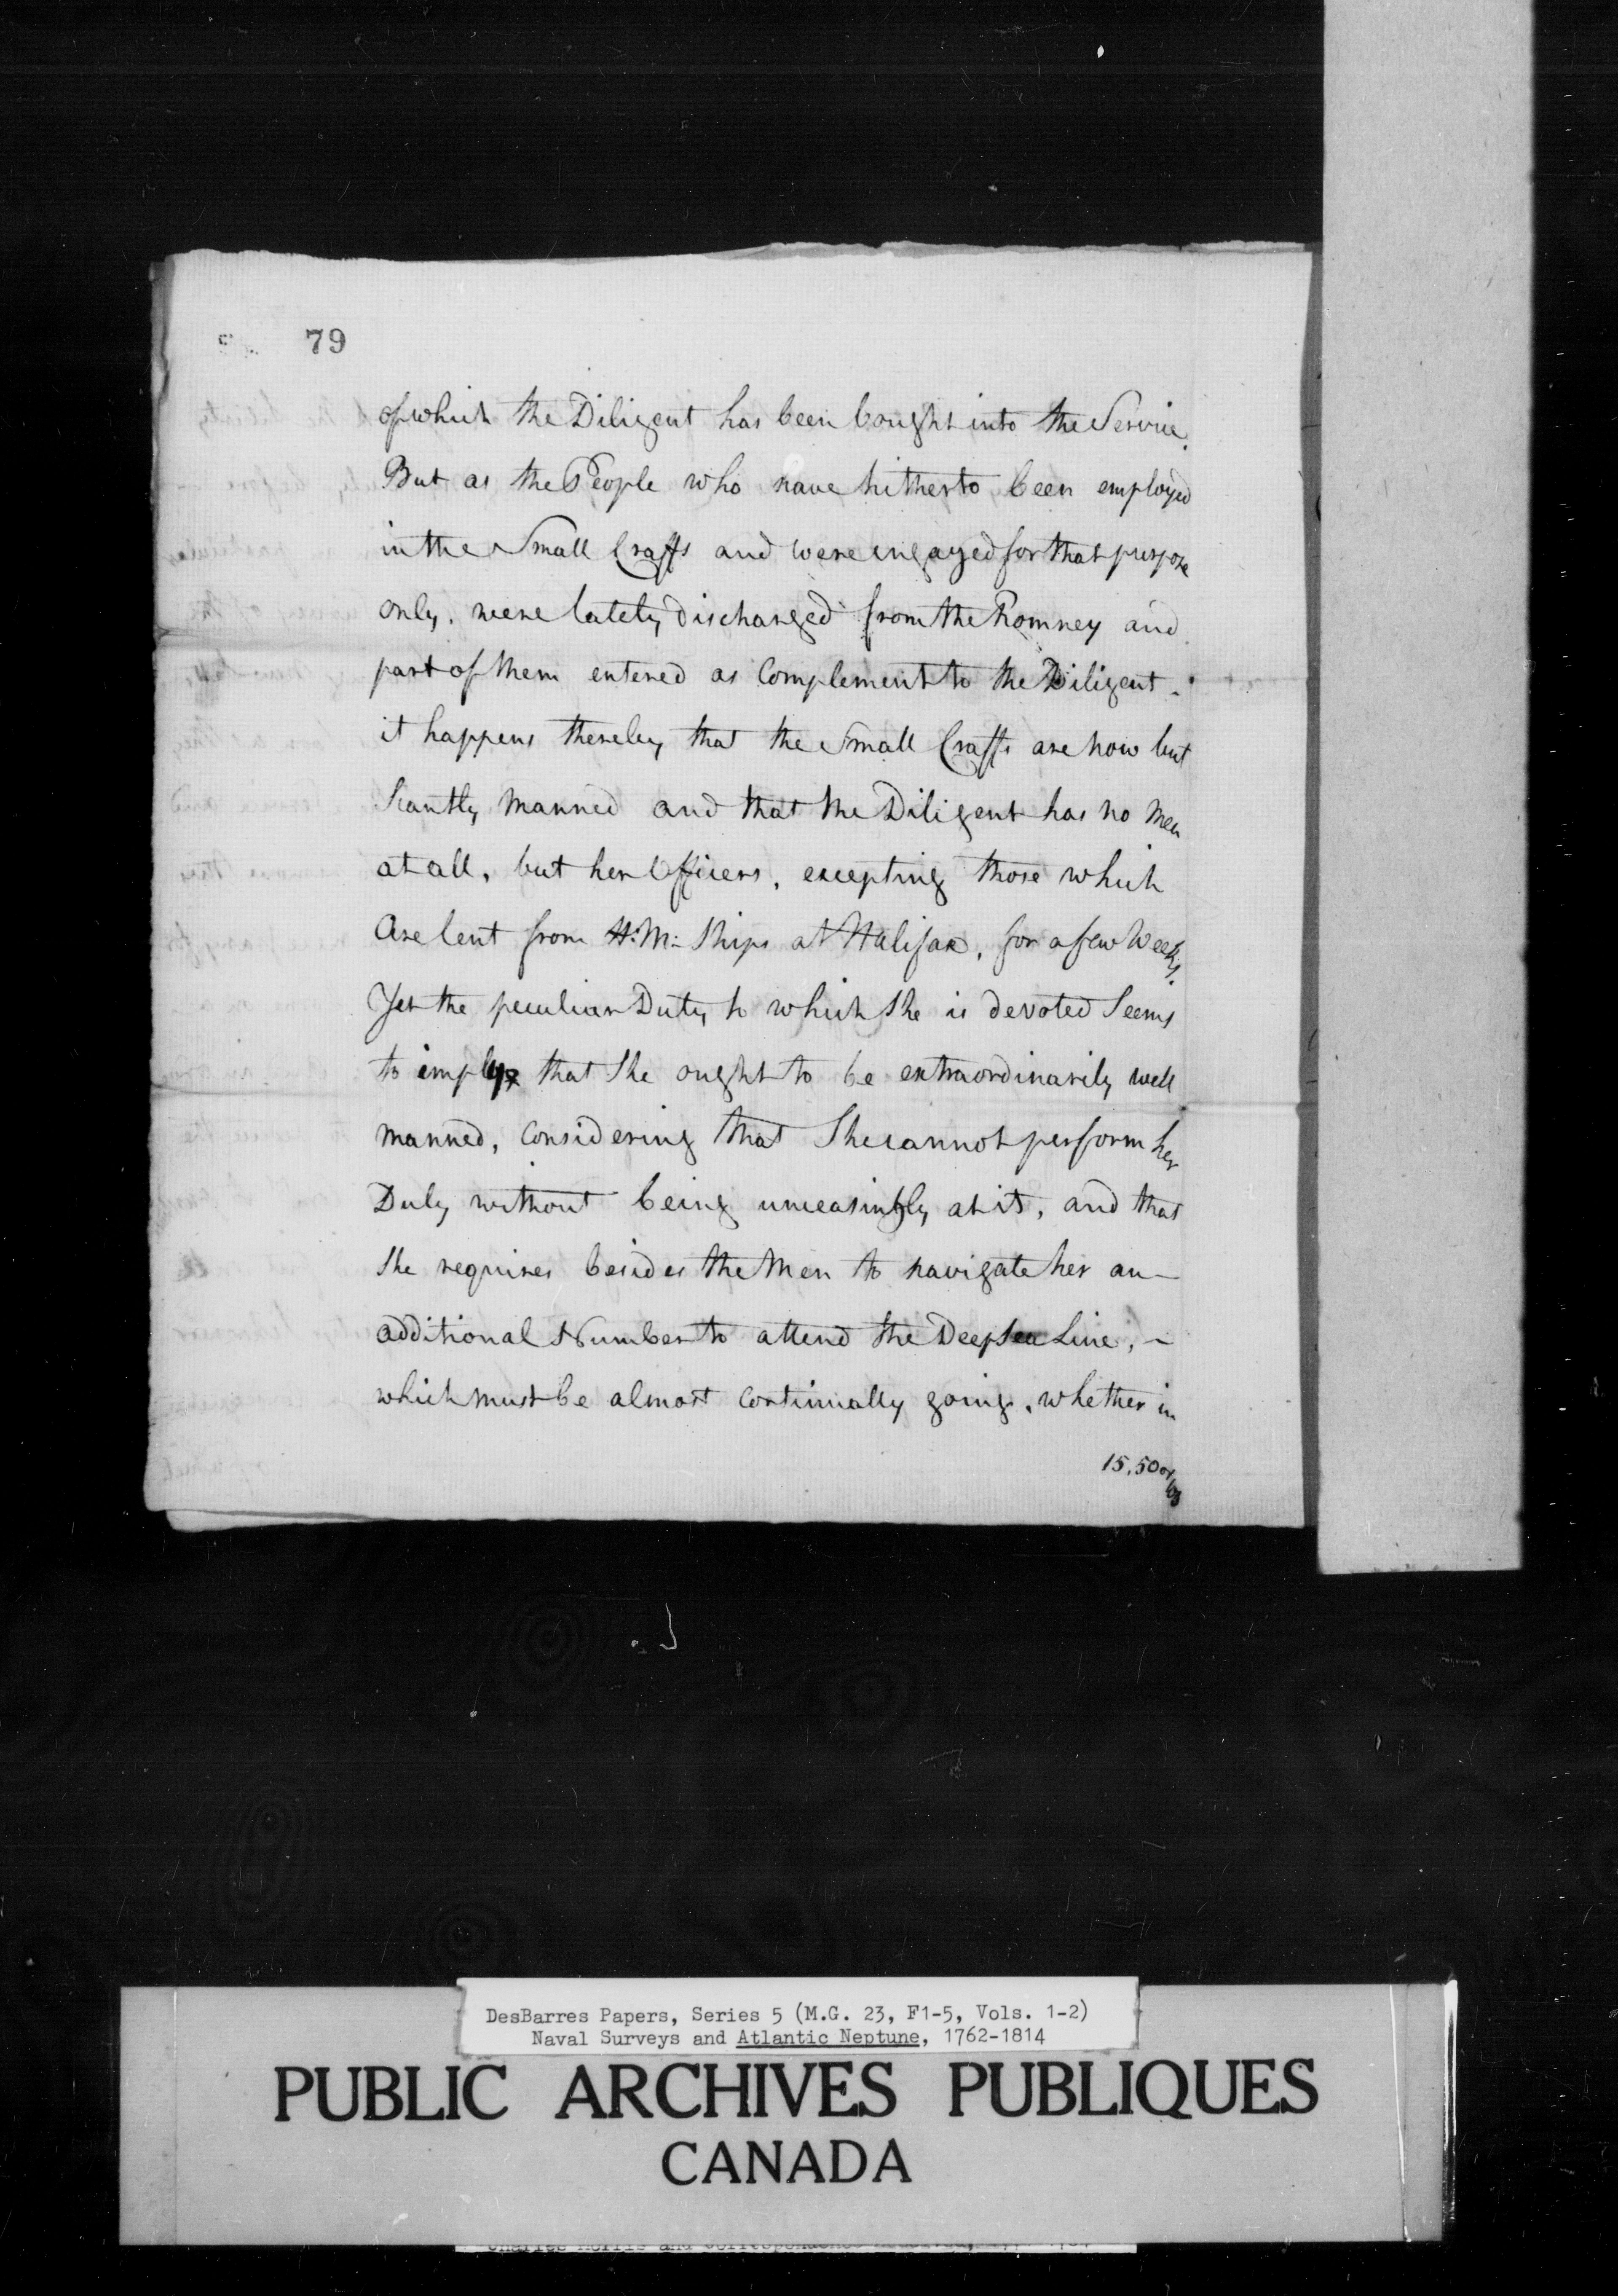 79
of which the Diligent has been bought into the Service.
But as the People who have hitherto been employed
in the Small Crafts and were engaged for that purpose
only, were lately discharged from the Romney and
part of them entered as Complement to the Diligent -
it happens thereby that the Small Crafts are now but
Scantly Manned and that the Diligent has no Men
at all, but her Officers, excepting those which
Are lent from H: M: Ships at Halifax, for a few Weeks,
Yet the peculiar Duty to which She is devoted Seems
to imply that She ought to be extraordinarily well
manned, Considering that She cannot perform her
Duty without being unceasingly at it, and that
She requires besides the Men to navigate her an -
additional Number to attend the Deep Sea Line, -
which must be almost Continually going, whether in
15, 50 or
DesBarres Papers, Series 5 (M.G. 23, F1-5, Vols. 1-2)
Naval Surveys and Atlantic Neptune, 1762-1814
PUBLIC ARCHIVES PUBLIQUES
CANADA